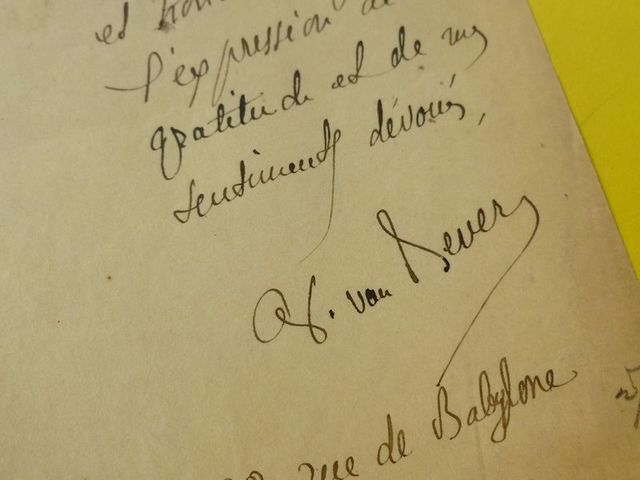 et
l'expression de
gratitude et de mes
sentiments dévoués,
Ad. van Bever
rue de Babylone